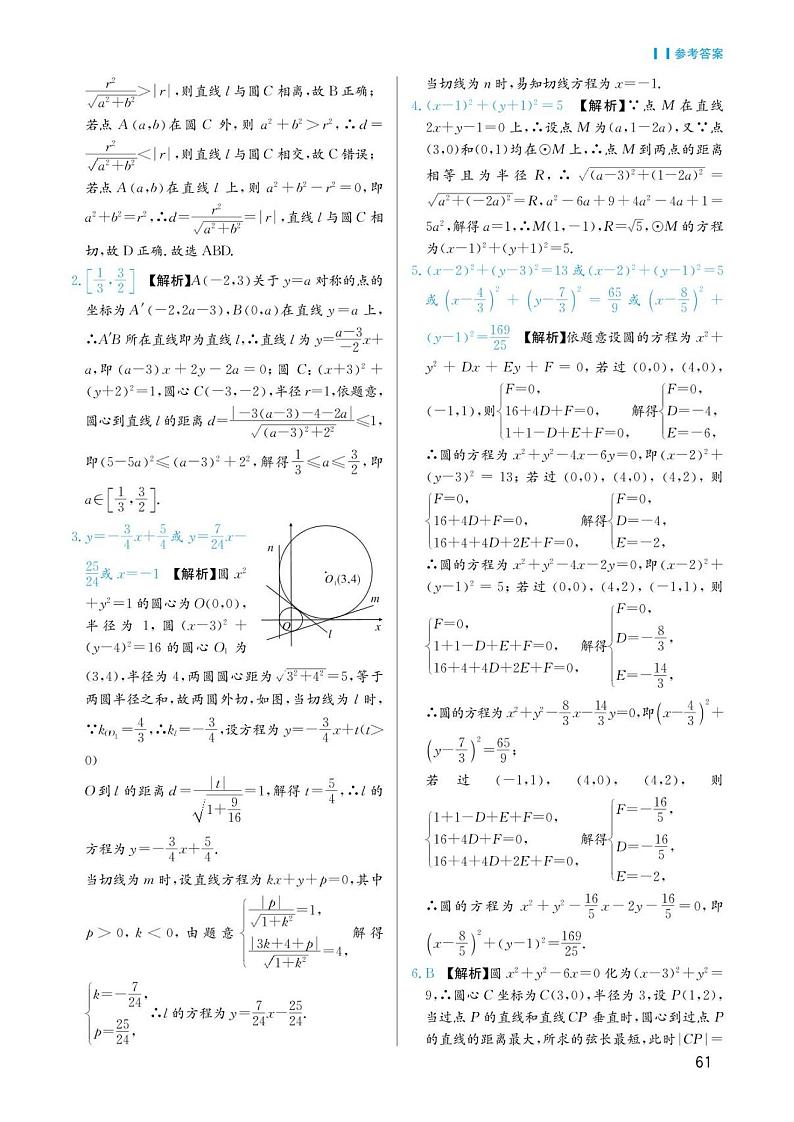 参考答案
r²/√(a²+b²)>|r|,则直线 l 与圆 C 相离,故 B 正确;
若点 A(a,b)在圆 C 外,则 a²+b²>r²,∴d=
r²/√(a²+b²)<|r|,则直线 l 与圆 C 相交,故 C 错误;
若点 A(a,b)在直线 l 上,则 a²+b²-r²=0,即
a²+b²=r²,∴d=r²/√(a²+b²)=|r|,直线 l 与圆 C 相
切,故 D 正确.故选 ABD.
2.[1/3,3/2] 【解析】A(-2,3)关于 y=a 对称的点的
坐标为 A′(-2,2a-3),B(0,a)在直线 y=a 上,
∴A′B 所在直线即为直线 l,∴直线 l 为 y=(a-3)/(-2) x+
a,即 (a-3)x+2y-2a=0;圆 C:(x+3)²+
(y+2)²=1,圆心 C(-3,-2),半径 r=1,依题意,
圆心到直线 l 的距离 d=|-3(a-3)-4-2a|/√((a-3)²+2²)≤1,
即(5-5a)²≤(a-3)²+2²,解得 1/3≤a≤3/2,即
a∈[1/3,3/2].
3. y=-3/4 x+5/4 或 y=7/24 x-
25/24 或 x=-1 【解析】圆 x²
+y²=1 的圆心为 O(0,0),
半径为 1,圆 (x-3)²+
(y-4)²=16 的圆心 O₁ 为
n
O₁(3,4)
m
O
l
x
(3,4),半径为 4,两圆圆心距为√(3²+4²)=5,等于
两圆半径之和,故两圆外切,如图,当切线为 l 时,
∵k_OO₁=4/3,∴k_l=-3/4,设方程为 y=-3/4 x+t(t>
0)
O 到 l 的距离 d=|t|/√(1+9/16)=1,解得 t=5/4,∴l 的
方程为 y=-3/4 x+5/4.
当切线为 m 时,设直线方程为 kx+y+p=0,其中
p>0,k<0,由题意{|p|/√(1+k²)=1, |3k+4+p|/√(1+k²)=4, 解得
{k=-7/24, p=25/24, ∴l 的方程为 y=7/24 x-25/24.
当切线为 n 时,易知切线方程为 x=-1.
4.(x-1)²+(y+1)²=5 【解析】∵点 M 在直线
2x+y-1=0 上,∴设点 M 为(a,1-2a),又∵点
(3,0)和(0,1)均在⊙M 上,∴点 M 到两点的距离
相等且为半径 R,∴ √((a-3)²+(1-2a)²)=
√(a²+(-2a)²)=R,a²-6a+9+4a²-4a+1=
5a²,解得 a=1,∴M(1,-1),R=√5,⊙M 的方程
为(x-1)²+(y+1)²=5.
5.(x-2)²+(y-3)²=13 或(x-2)²+(y-1)²=5
或 (x-4/3)²+(y-7/3)²=65/9 或 (x-8/5)²+
(y-1)²=169/25 【解析】依题意设圆的方程为 x²+
y²+Dx+Ey+F=0,若过 (0,0),(4,0),
(-1,1),则{F=0, 16+4D+F=0, 1+1-D+E+F=0, 解得{F=0, D=-4, E=-6,
∴圆的方程为 x²+y²-4x-6y=0,即(x-2)²+
(y-3)²=13;若过 (0,0),(4,0),(4,2),则
{F=0, 16+4D+F=0, 16+4+4D+2E+F=0, 解得{F=0, D=-4, E=-2,
∴圆的方程为 x²+y²-4x-2y=0,即(x-2)²+
(y-1)²=5;若过 (0,0),(4,2),(-1,1),则
{F=0, 1+1-D+E+F=0, 16+4+4D+2E+F=0, 解得{F=0, D=-8/3, E=-14/3,
∴圆的方程为 x²+y²-8/3 x-14/3 y=0,即(x-4/3)²+
(y-7/3)²=65/9;
若过 (-1,1),(4,0),(4,2),则
{1+1-D+E+F=0, 16+4D+F=0, 16+4+4D+2E+F=0, 解得{F=-16/5, D=-16/5, E=-2,
∴圆的方程为 x²+y²-16/5 x-2y-16/5=0,即
(x-8/5)²+(y-1)²=169/25.
6. B 【解析】圆 x²+y²-6x=0 化为(x-3)²+y²=
9,∴圆心 C 坐标为 C(3,0),半径为 3,设 P(1,2),
当过点 P 的直线和直线 CP 垂直时,圆心到过点 P
的直线的距离最大,所求的弦长最短,此时|CP|=
61